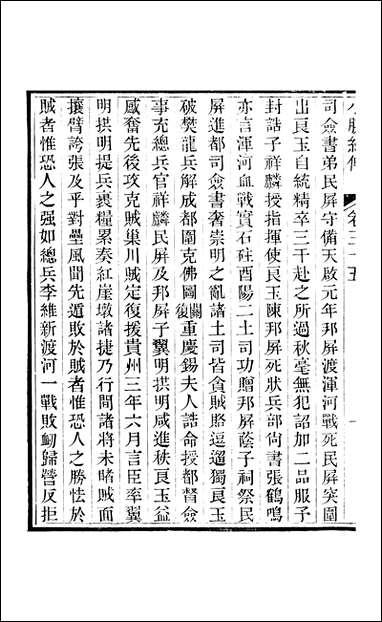 小腆紀傳 卷三十五 一
司僉書弟民屏守備天啟元年邦屏渡渾河戰死民屏突圍
出良玉自統精卒三千赴之所過秋毫無犯詔加二品服子
封誥子祥麟授指揮使良玉陳邦屏死狀兵部尚書張鶴鳴
亦言渾河血戰實石砫酉陽二土司功贈邦屏蔭子祠祭民
屏進都司僉書奢崇明之亂諸土司皆貪賊賂逗遛獨良玉
破樊龍兵解成都圍克佛圖關復重慶錫夫人誥命授都督僉
事充總兵官祥麟民屏及邦屏子翼明拱明咸進秩良玉益
感奮先後攻克賊巢川賊定復援貴州三年六月言臣率翼
明拱明提兵裹糧累奏紅崖墩諸捷乃行間諸將未睹賊面
攘臂誇張及乎對壘風聞先遁敗於賊者惟恐人之勝怯於
賊者惟恐人之强如總兵李維新渡河一戰敗衂歸營反拒